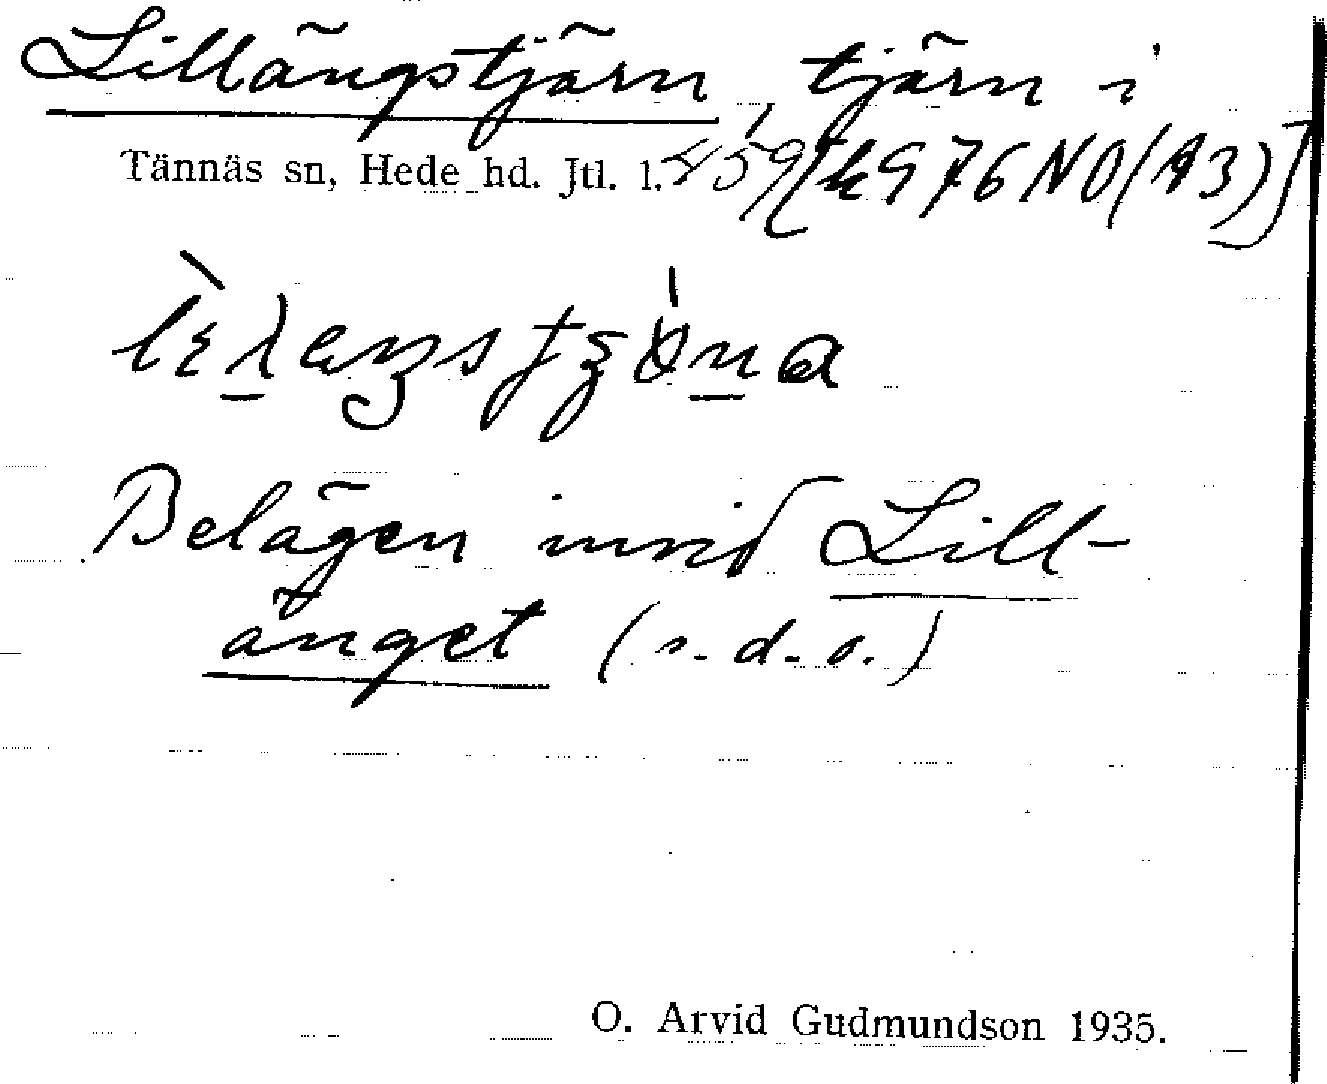 Lillängstjärn, tjärn i
Tännäs sn, Hede hd. Jtl. l. 459 [k 976 NO (A3)]
Belägen invid Lill-
änget (s. d. o.)
O. Arvid Gudmundson 1935.